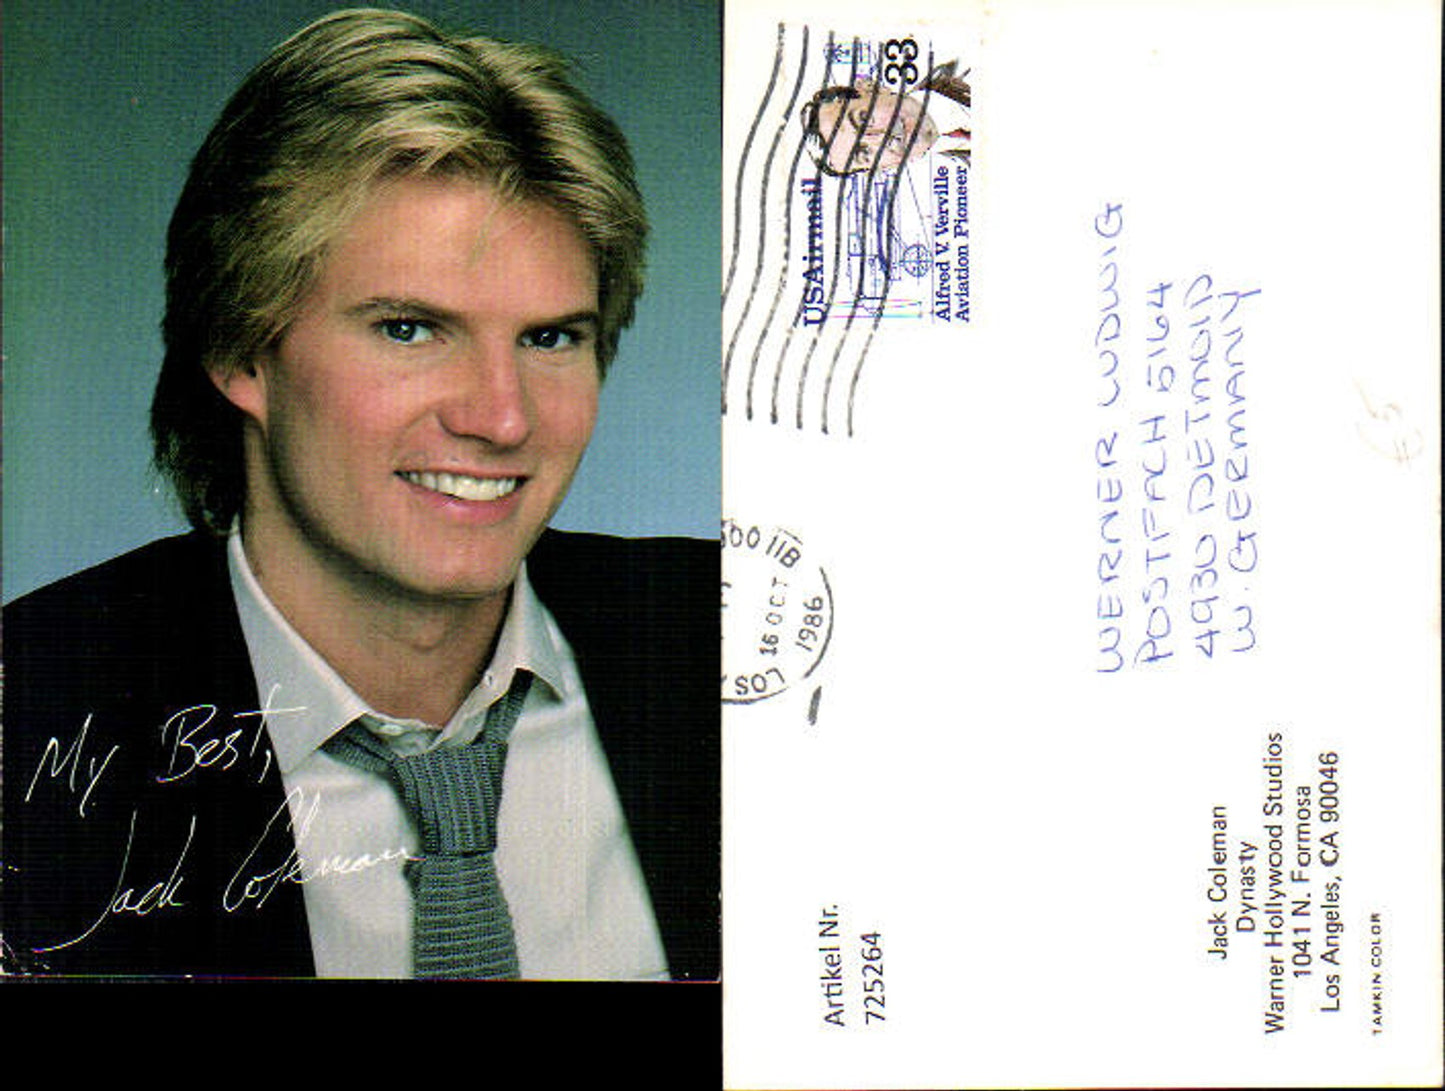 My Best,
Jack Coleman
33
USAirmail
Alfred V. Verville
Aviation Pioneer
16 OCT
1986
LOS
WERNER LUDWIG
POSTFACH 5164
4930 DETMOLD
W. GERMANY
€5
Jack Coleman
Dynasty
Warner Hollywood Studios
1041 N. Formosa
Los Angeles, CA 90046
TAMKIN COLOR
Artikel Nr.
725264